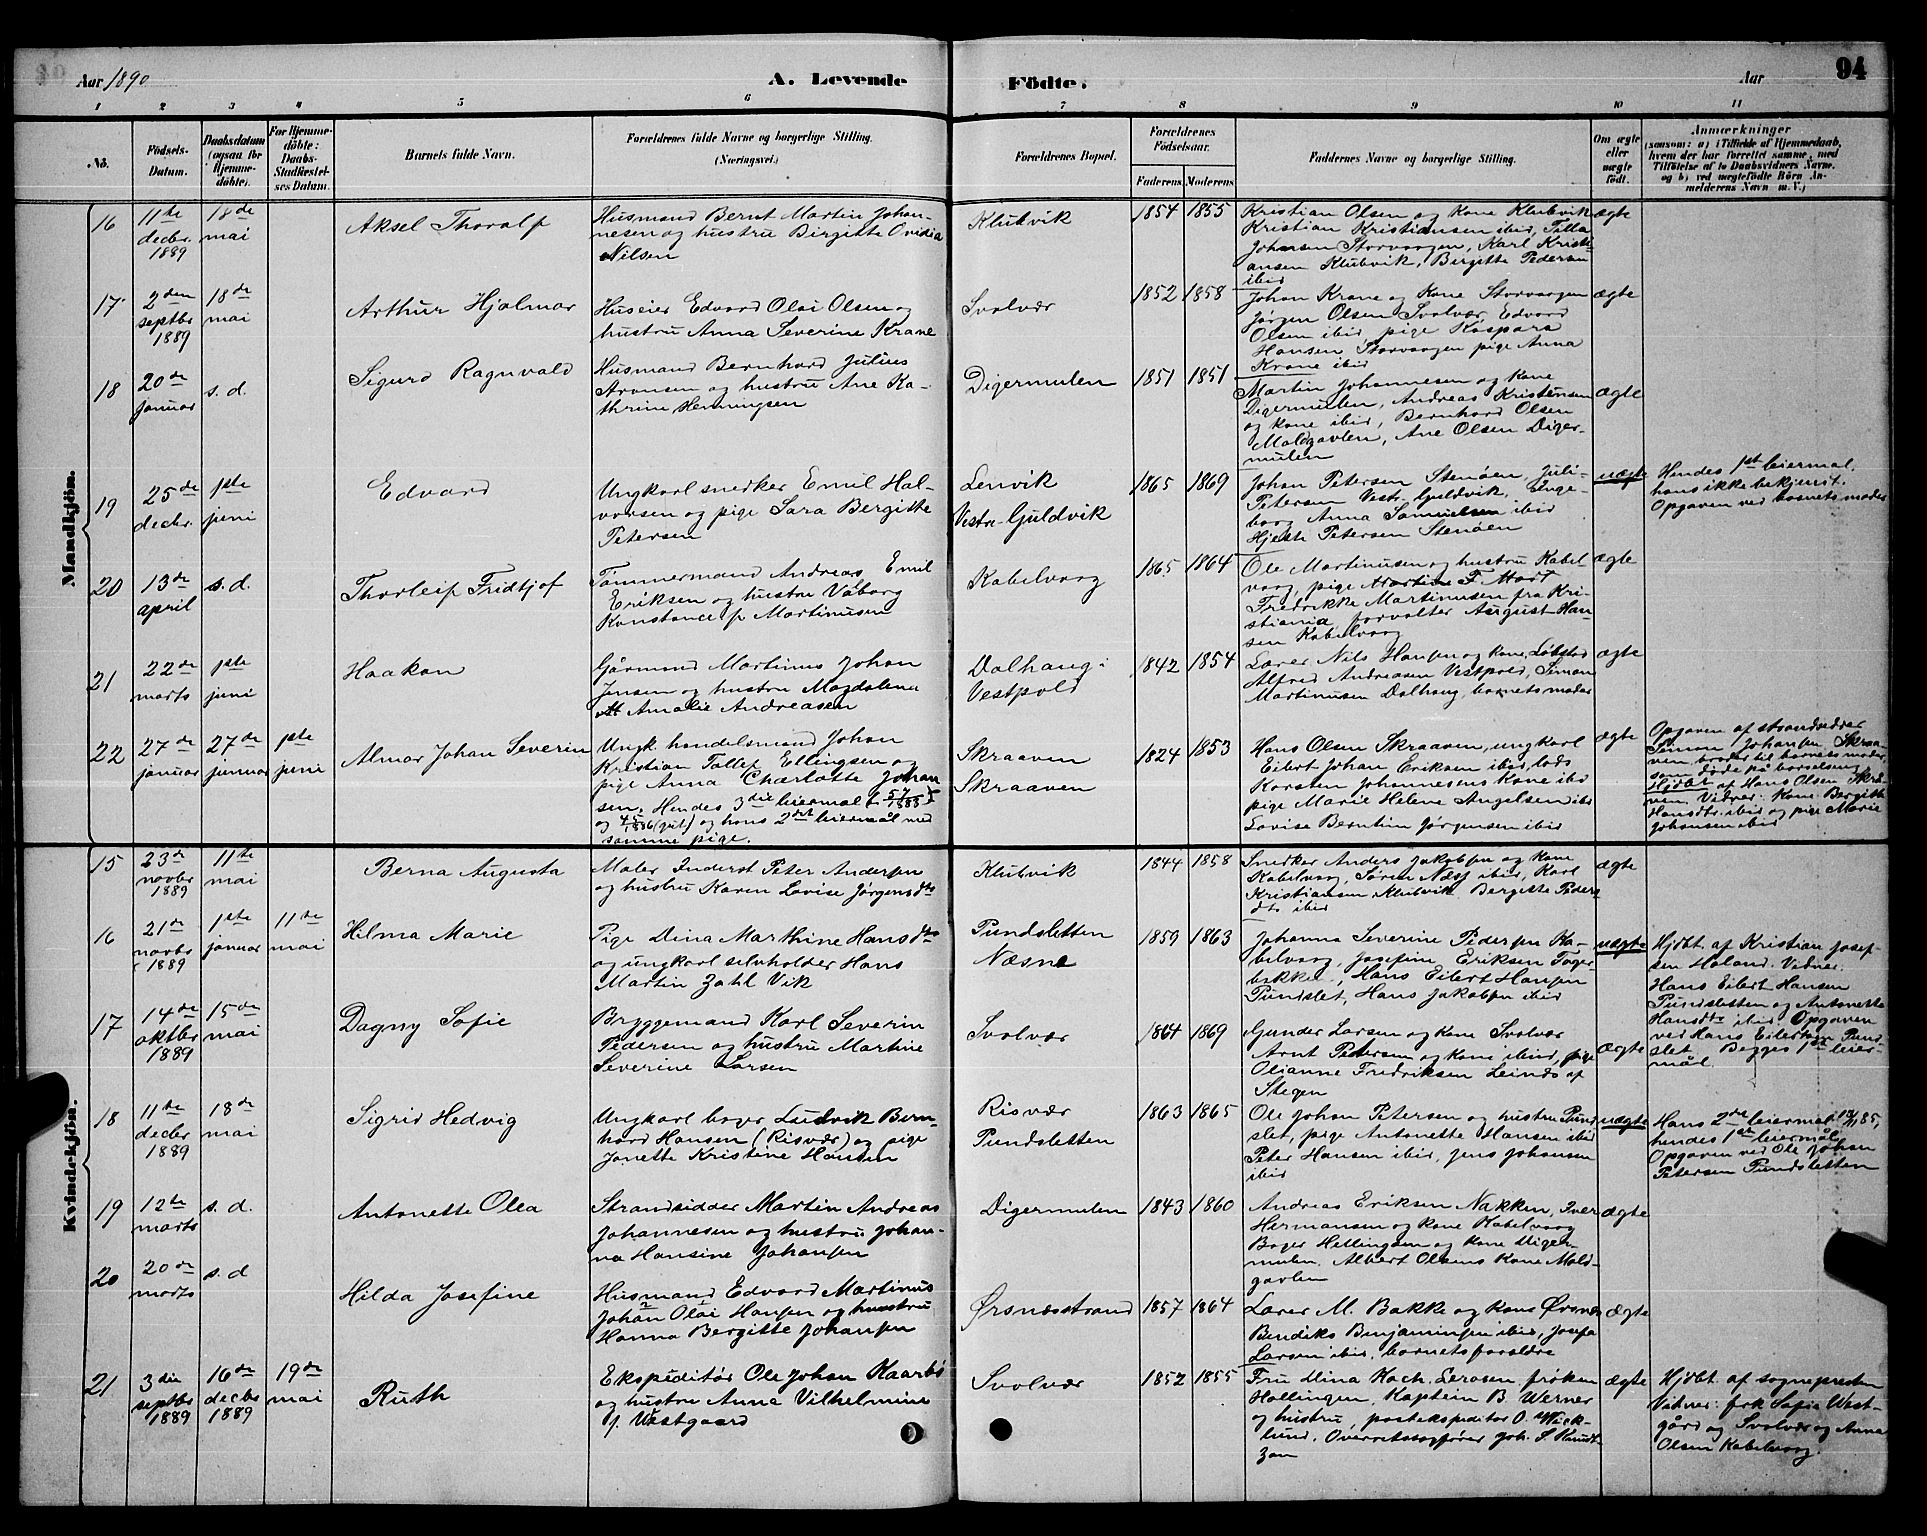 Aar 1890
A. Levende
Födte.
Aar
94
1 2 3 4 5 6 7 8 9 10 11
No.
Födsels-
Datum.
Daabsdatum
(ogsaa for
Hjemme-
döbte).
For Hjemme-
döbte:
Daabs-
Stadfæstel-
ses Datum.
Barnets fulde Navn.
Forældrenes fulde Navne og borgerlige Stilling.
(Næringsvei.)
Forældrenes Bopæl.
Forældrenes
Födselsaar.
Faderens Moderens
Faddernes Navne og borgerlige Stilling.
Om ægte
eller
uægte
födt.
Anmærkninger
(saasom: a) i Tilfælde af Hjemmedaab,
hvem der har forrettet samme, med
Tilföielse af to Daabsvidners Navne.
og b) ved uægtefödte Börn An-
melderens Navn m. V.)
Mandkjön.
16
11te
decbr.
1889
18de
mai
Aksel Thoralf
Husmand Bernt Martin Johan-
nesen og hustru Birgitte Ovidia
Nilsen
Klubvik
1854 1855
Kristian Olsen og Kone Klubvik
Kristian Kristiansen ibid,
Johansen Storvaagen, Karl Kristi-
ansen Klubvik, Birgitte Pedersen
ibid
ægte
17
2den
septbr
1889
18de
mai
Arthur Hjalmar
Huseier Edvard Olai Olsen og
hustru Anna Severine Krane
Svolvær
1852 1858
Johan Krane og Kone Storvaagen
Jörgen Olsen Svolvær, Edvard
Olsen ibid, pige Kaspara
Hansen Storvaagen pige Anna
Krane ibid
ægte
18
20de
januar
s. d.
Sigurd Ragnvald
Husmand Bernhard Julius
Aronsen og hustru Ane Ka-
thrine Henningsen
Digermulen
1851 1851
Martin Johannesen og Kone
Digermulen, Andreas Kristensen
og kone ibid, Bernhard Olsen
Moldgavlen, Ane Olsen Diger-
mulen
ægte
19
25de
decbr.
1ste
juni
Edvard
Ungkarl snedker Emil Hal-
vorsen og pige Sara Bergitte
Petersen
Lenvik
Vestre-Guldvik
1865 1869
Johan Petersen Stenöen, Juli-
Petersen Vestr. Guldvik, Inge-
borg Anna Samuelsen ibid
Petersen Stenöen
uægte
Hendes 1ste leiermal,
hans ikke bekjendt.
Opgaven ved barnets moder
20
13de
april
s. d.
Thorleif Fridtjof
Tömmermand Andreas Emil
Eriksen og hustru Våborg
Konstance f. Martinusen
Kabelvaag
1865 1864
Ole Martinusen og hustru Kabel-
vaag, pige Martine F. Mort
Fredrikke Martinusen fra Kri-
stiania, forvalter August Han-
sen Kabelvaag
ægte
21
22de
marts
1ste
juni
Haakon
Gårmand Martinus Johan
Jensen og hustru Magdalena
Amalie Andreasen
Dalhaug i
Vestpold
1842 1854
Lærer Nils Hansen og Kone,
Alfred Andreasen Vestpold, Simon
Martinusen Dalhaug, barnets moder
ægte
22
27de
januar
27de
januar
1ste
juni
Almar Johan Severin
Ungk. handelsmand Johan
Kristian Tallef Ellingsen og
pige Anna Charlotte Johan
sen. Hendes 3die leiermal
og hans 2det leiermål med
samme pige.
Skraaven
Skraaven
1824 1853
Hans Olsen Skraaven, ungkarl
Eilert Johan Eriksen ibid, lods
Karsten Johannesens Kone ibid
pige Marie Helene Angelsen ibid
Lovise Berntine Jörgensen ibid
ægte
Opgaven af strandsidder
Simon Johansen Skraa-
ven, broder til barnets moder,
som döde på barselseng
Hjdbt af Hans Olsen Skra-
ven. Vidner: Kone Bergitte
Hansdtr. ibid og pige Marie
Johansen ibid
Kvindekjön.
15
23de
novbr
1889
11te
mai
Berna Augusta
Maler Inderst Peter Andersen
og hustru Karen Lovise Jörgensdtr
Klubvik
1844 1858
Snedker Anders Jakobsen og Kone
Kabelvaag, Sören Næss ibid, Karl
Kristiansen Klubvik Bergitte Peders
dtr ibid
ægte
16
21de
novbr
1889
1ste
januar
11te
mai
Hilma Marie
Pige Dina Marthine Hansdtr
og ungkarl selvholder Hans
Martin Zahl Vik
Pundsletten
Næsne
1859 1863
Johanna Severine Pedersen Ka-
belvaag, Josefine Eriksen Fager-
bakke, Hans Eilert Hansen
Pundslet, Hans Jakobsen ibid
uægte
Hjdbt. af Kristian Josef-
sen Holand. Vidner:
Hans Eilert Hansen
Pundsletten og Antonette
Hansdtr ibid. Opgaven
ved Hans Eilertsen Pund-
slet. Begges 1ste leier-
mål.
17
14de
oktbr
1889
15de
mai
Dagny Sofie
Bryggemand Karl Severin
Pedersen og hustru Martine
Severine Larsen
Svolvær
1864 1869
Gunder Larsen og Kone Svolvær
Arnt Petersen og Kone ibid, pige
Olianne Fredriksen Leinds af
Stegen
ægte
18
11te
decbr
1889
18de
mai
Sigrid Hedvig
Ungkarl bager Ludvik Bern-
hard Hansen (Risvær) og pige
Janette Kristine Hansen
Risvær
Pundsletten
1863 1865
Ole Johan Petersen og hustru Pund
slet, pige Antonette Hansen ibid
Peter Hansen ibid, Jens Johansen
ibid
uægte
Hans 2det leiermal
hendes 1ste leiermål
Opgaven ved Ole Johan
Petersen Pundsletten
19
12te
marts
s. d.
Antonette Olea
Strandsidder Martin Andreas
Johannesen og hustru Johan-
na Hansine Johansen
Digermulen
1843 1860
Andreas Eriksen Nakken, Iver
Hermansen og Kone Kabelvaag
Bager Hellingsen og Kone Diger-
mulen, Albert Olsens Kone Mold-
gavlen
ægte
20
20de
marts
s. d
Hilda Josefine
Husmand Edvard Martinus
Johan Olai Hansen og hustru
Hanna Bergitte Johansen
Ørsnæsstrand
1857 1864
Lærer M. Bakke og Kone Ørsnæs
Bendiks Benjaminsen ibid, Josefa
Larsen ibid, barnets forældre
ægte
21
3die
septbr
1889
16de
decbr
1889
19de
mai
Ruth
Ekspeditör Ole Johan Kaarbö
og hustru Anna Vilhelmine
f. Westgaard
Svolvær
1852 1855
Fru Mina Koch, fröken
Hellingen, Kaptein B. Werner
og hustru, postekspeditör O. Wick-
lund, Overretssagförer Joh. S. Knudt-
zon
ægte
Hjdbt af sognepresten
Vidner: frk Sofie West-
gård og Svolvær og Anna
Olsen Kabelvaag.